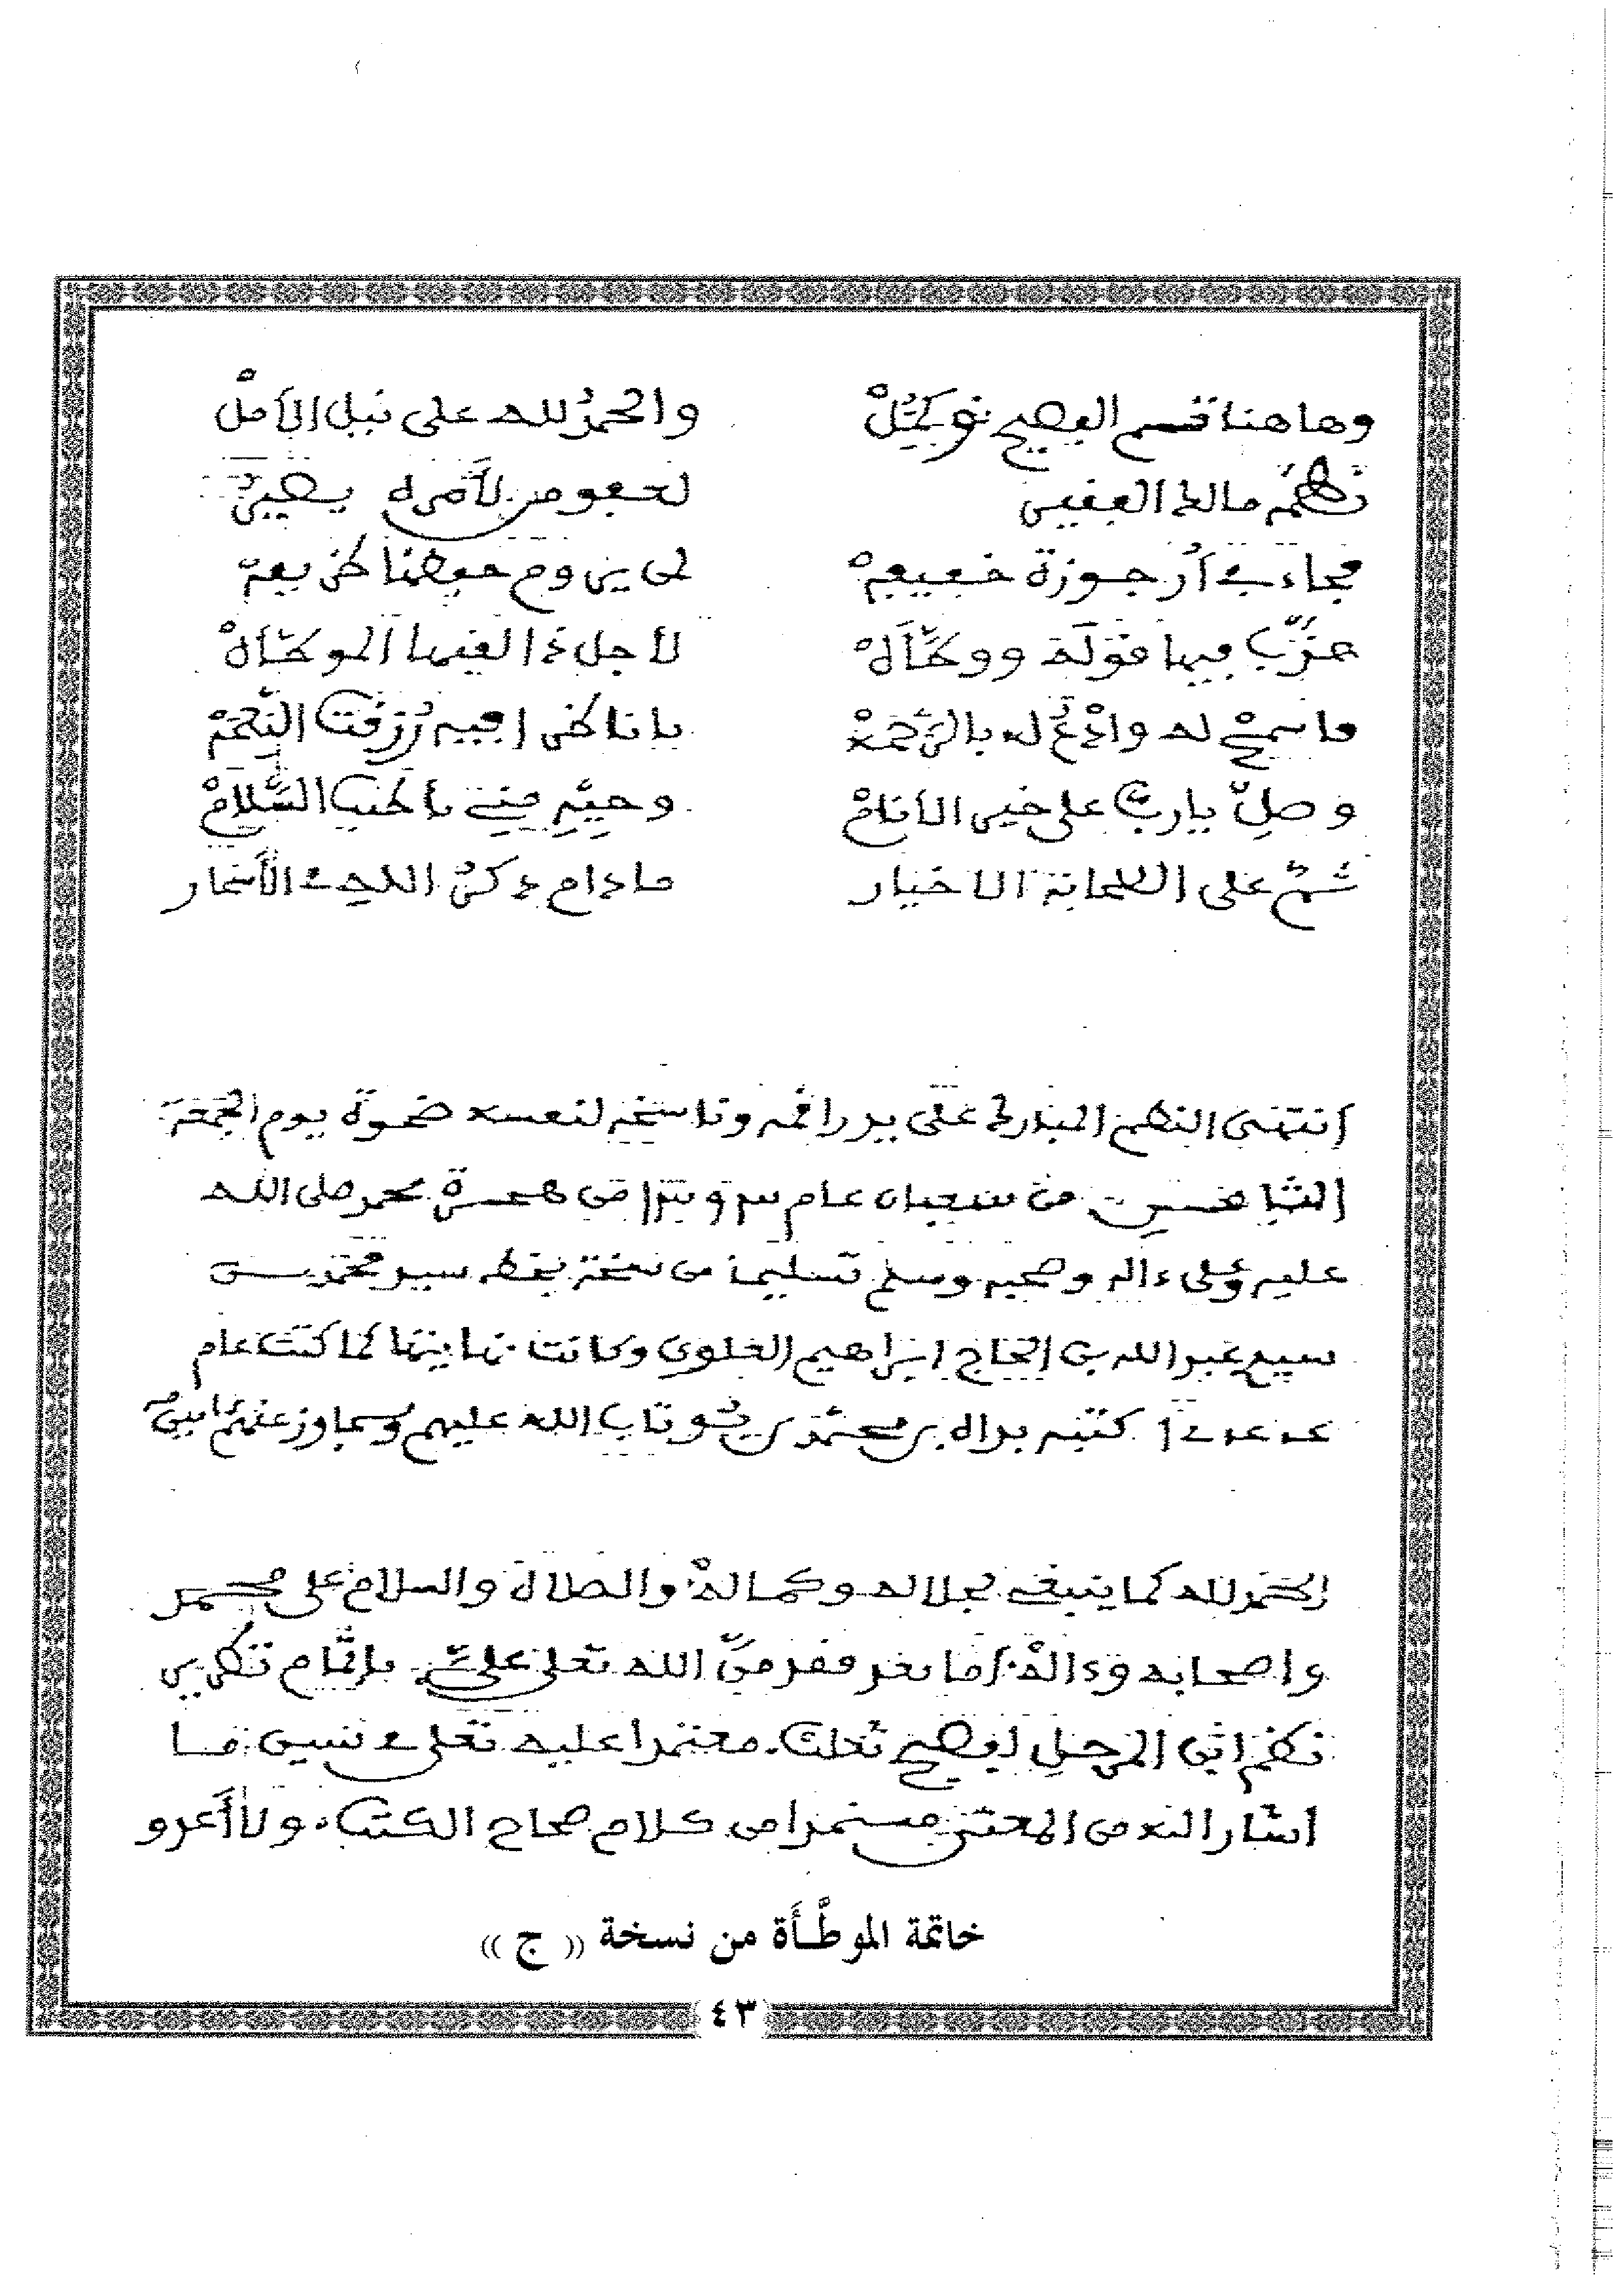 وهاهنا قسم الفصيح قد كَمُلْ والحمدُ لله على نيل الأملْ
نظمُ مالك الفقير لعفو من لأمره يصيرُ
فجاء في أرجوزة ضعيفهْ لمن يروم حفظها ظريفهْ
هذَّب فيها قوله ووطَّأهْ لأجل ذا لقبها الموطَّأهْ
فاسمحْ له وادْعُ له بالرَّحمهْ يا ناظرا فيه رُزقتَ النِّعمهْ
وصلِّ يا ربِّ على خير الأنامْ وحيِّهِ منيِ بأطيب السَّلامْ
ثمَّ على الصحابة الاخيار ما دام ذكرُ الله في الأسحار
انتهى النظم المبارك على يد راقمه وناسخه لنفسه ضحوة يوم الجمعة
من شعبان عام من هجرة محمد صلى الله
عليه وعلى ءاله وصحبه وسلم تسليما من نسخة بخط سيد محمد بن
سيد عبد الله بن الحاج ابراهيم العلوي وكانت نهايتها كما كتب عام
كتبه بن محمد بن تاب الله عليهم وتجاوز عنهم ءامين
الحمد لله كما ينبغي لجلاله وكماله والصلاة والسلام على محمد
واصحابه وءاله أما بعد فقد منَّ الله تعلى عليَّ بإتمام
نظم ابن المرحل لفصيح ثعلب معتمدا عليه تعلى في تبيين ما
أشار اليه من المعنى مستمدا من كلام صحاح الكتب ولا أعدو
خاتمة الموطَّأَة من نسخة (( ج ))
٤٣